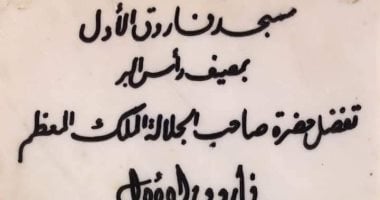 مسجد فاروق الأول
بمصيف رأس البر
تفضل حضرة صاحب الجلالة الملك المعظم
فاروق الأول